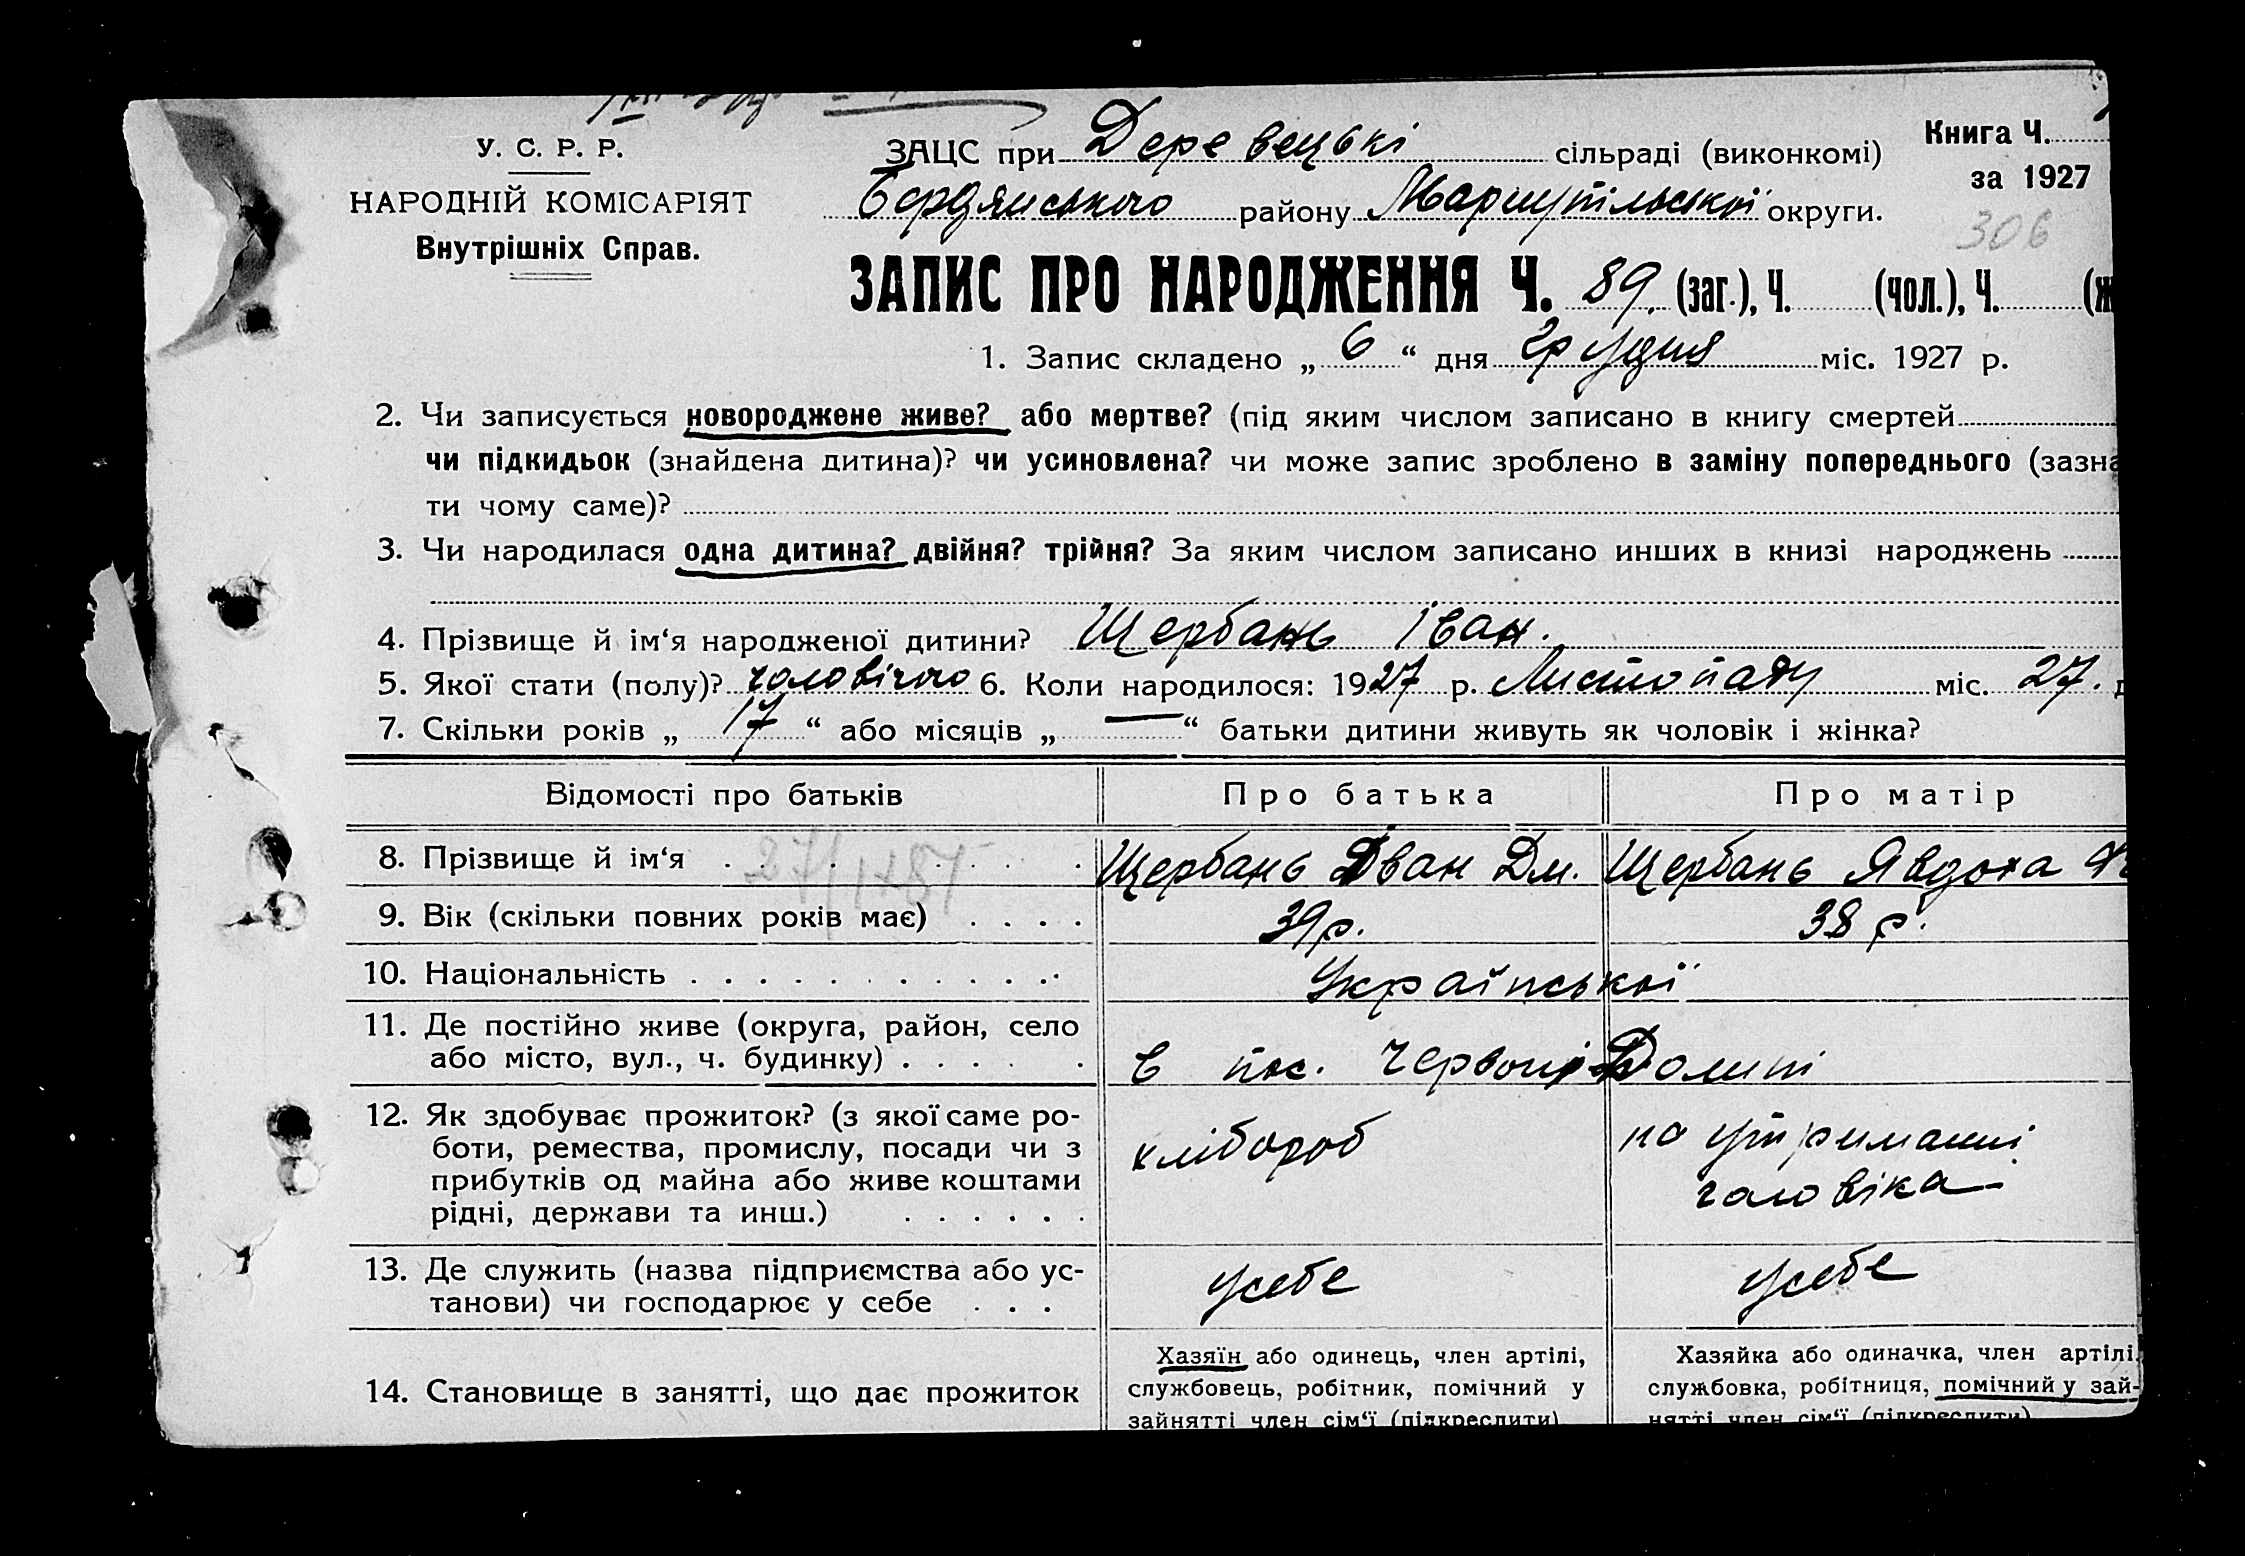 У. С. Р. Р.
НАРОДНІЙ КОМІСАРІЯТ
Внутрішніх Справ.
ЗАЦС при Деревецькі сільраді (виконкомі)
Бердянського району Маріупільської округи.
Книга Ч.
за 1927
306
ЗАПИС ПРО НАРОДЖЕННЯ Ч. 89. (заг.), Ч. (чол.), Ч. (ж
1. Запис складено „ 6 “ дня грудня міс. 1927 р.
2. Чи записується новороджене живе? або мертве? (під яким числом записано в книгу смертей
чи підкидьок (знайдена дитина)? чи усиновлена? чи може запис зроблено в заміну попереднього (зазна
ти чому саме)?
3. Чи народилася одна дитина? двійня? трійня? За яким числом записано инших в книзі народжень
4. Прізвище й ім‘я народженої дитини? Щербань Іван.
5. Якої стати (полу)? чоловічого 6. Коли народилося: 1927 р. Листопаду міс. 27. д
7. Скільки років „ 17 “ або місяців „ — “ батьки дитини живуть як чоловік і жінка?
Відомості про батьків Про батька Про матір
8. Прізвище й ім‘я Щербань Іван Дм. Щербань Явдоха
9. Вік (скільки повних років має) 39 р. 38 р.
10. Національність Української
11. Де постійно живе (округа, район, село
або місто, вул., ч. будинку) в пос. Червоній Долині
12. Як здобуває прожиток? (з якої саме ро-
боти, ремества, промислу, посади чи з
прибутків од майна або живе коштами
рідні, держави та инш.)
хлібороб
на утриманні
чоловіка
13. Де служить (назва підприємства або ус-
танови) чи господарює у себе
усебе усебе
14. Становище в занятті, що дає прожиток
Хазяїн або одинець, член артілі,
службовець, робітник, помічний у
зайнятті член сім‘ї (підкреслити)
Хазяйка або одиначка, член артілі,
службовка, робітниця, помічний у зай-
нятті член сім‘ї (підкреслити)